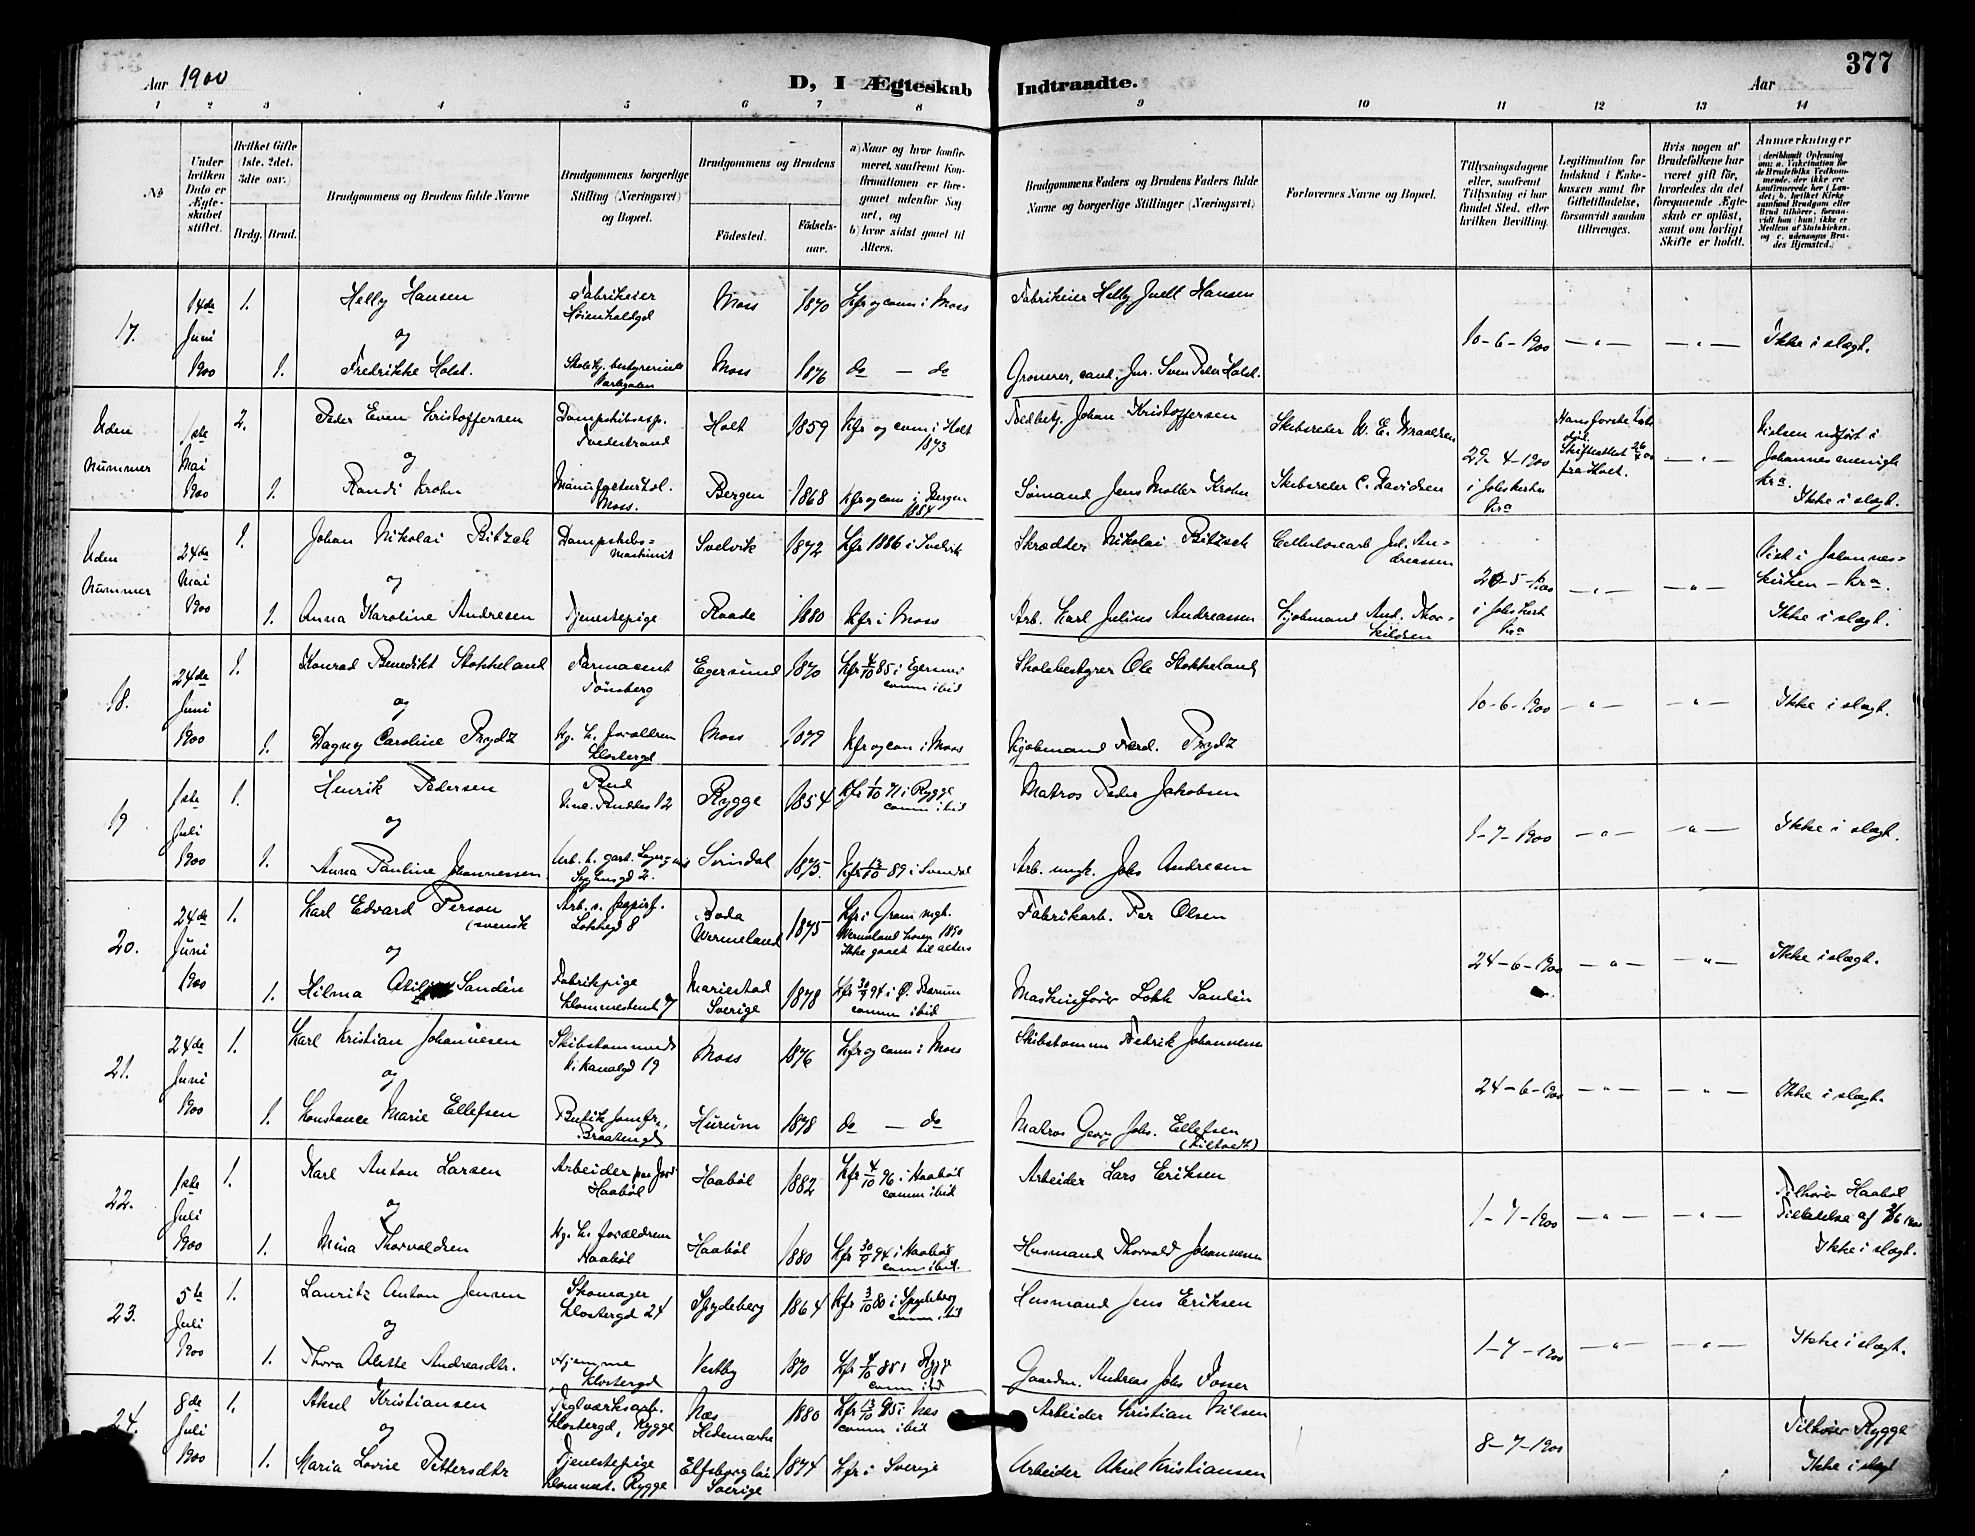 377
Aar 1900
D, I Ægteskab Indtraadte.
Aar
1 2 3 4 5 6 7 8 9 10 11 12 13 14
No
Under hvilken Dato er Ægteskabet stiftet.
Hvilket Gifte (1ste, 2det, 3die osv.)
Brdg. Brud.
Brudgommens og Brudens fulde Navne
Brudgommens borgerlige Stilling (Næringsvei) og Bopæl.
Brudgommens og Brudens
Fødested.
Fødselsaar.
a) Naar og hvor konfirmeret, saafremt Konfirmationen er foregaaet udenfor Sognet, og
b) hvor sidst gaaet til Alters.
Brudgommens Faders og Brudens Faders fulde Navne og borgerlige Stillinger (Næringsvei)
Forlovernes Navne og Bopæl.
Tillysningsdagene eller, saafremt Tillysning ei har fundet Sted, efter hvilken Bevilling.
Legitimation for Indskud i Enkekassen samt for Giftetilladelse, forsaavidt saadan tiltrænges.
Hvis nogen af Brudefolkene har været gift før, hvorledes da det foregaaende Ægteskab er opløst, samt om lovligt Skifte er holdt.
Anmærkninger
(deriblandt Oplysning om: a. Vakcination for de Brudefolks Vedkommende, der ikke ere konfirmerede her i Landet; b. hvilket Kirkesamfund Brudgom eller Brud tilhører, forsaavidt han (hun) ikke er Medlem af Statskirken, og c. udensogns Brudes Hjemsted.)
17. 14de Juni 1900 1. Helly Hansen Fabrikeier Moss 1870 Kfr og com i Moss Fabrikeier Helly Juell Hansen 10-6-1900 Ikke i slægt.
og
1. Fredrikke Holst. Moss 1876 do — do Gruveeier, cand. jur. Sven Peder Holst.
Uden Nummer 1ste Mai 1900 2. Peder Even Kristoffersen Dampskibsexp. Tvedestrand Holt 1859 Kfr og com i Holt 1873 Johan Kristoffersen Skibsreder 29-4-1900 i Johs kirken Kra Vielsen udført i Johannes menigh. Kra. Ikke i slægt.
og
1. Randi Krohn Manufacturhdl. Moss. Bergen 1868 Kfr og com i Bergen 1884 Sømand Jens Møller Krohn Skibsreder C. Davidsen
Uden Nummer 24de Mai 1900 1. Johan Nikolai Bitzch Dampskibsmaskinist Svelvik 1872 Kfr 1886 i Svelvik Skrædder Nikolai Bitzsch Cellulosearb Jul. Andreassen 20-5-1900 i Johs kirk Kra Viet i Johanneskirken - Kra. Ikke i slægt.
og
1. Anna Karoline Andresen Tjenestepige Raade 1880 Kfr i Moss Arb. Karl Julius Andreassen Kjøbmand And. Thorkildsen
18. 24de Juni 1900 1. Konrad Benedikt Stokkeland Farmaceut Tønsberg Egersund 1870 Kfr 4/10 85 i Egersund comm ibid Skolebestyrer Ole Stokkeland 10-6-1900 Ikke i slægt.
og
1. Dagny Caroline Prydz Hg. h. forældrene Klostergd Moss 1879 Kfr og com i Moss Kjøbmand Ferd. Prydz
19 1ste Juli 1900 1. Henrik Pedersen Rygge 1854 Kfr 1/10 71 i Rygge comm ibid Matros Peder Jakobsen 1-7-1900 Ikke i slægt.
og
1. Anna Pauline Johannessen Svindal 1875 Kfr 13/10 89 i Svindal Arb. Johs Andresen
20. 24de Juni 1900 1. Karl Edvard Person (svensk Arb. v. papirf. Lokkegd 8 Boda Wermeland 1875 Kfr i Wermeland 1890 Ikke gaaet til alters Fabrikarb. Per Olsen 24-6-1900 Ikke i slægt.
og
1. Hilma Sandén Fabrikpige Mariestad Sverige 1878 Kfr 30/9 94 i Ø. Bærum comm ibid Maskinfører Sandén
21. 24de Juni 1900 1. Karl Kristian Johannesen Skibstømmerm. Kanalgd 19 Moss 1876 Kfr og com i Moss Skibstømm Fredrik Johannesen 24-6-1900 Ikke i slægt.
og
1. Konstance Marie Ellefsen Butikjomfru, Braatengd Hurum 1878 do — do Matros Georg Johs. Ellefsen
22. 1ste Juli 1900 1. Karl Anton Larsen Arbeider paa Jord Haabøl Haabøl 1882 Kfr 4/10 96 i Haabøl comm ibid Arbeider Lars Eriksen 1-7-1900 Tilhører Haabøl Tilladelse af Ikke i slægt.
og
1. Mina Thorvaldsen Hg. h. forældrene Haabøl Haabøl 1880 Kfr 30/9 94 i Haabøl comm ibid. Husmand Thorvald Johannesen
23. 5te Juli 1900 1. Lauritz Anton Jensen Skomager Klostergd 24 Spydeberg 1864 Kfr 3/10 80 i Spydeberg comm ibid Husmand Jens Eriksen 1-7-1900 Ikke i slægt.
og
1. Thora Alette Andreasdtr. Hjemme Klostergd Vestby 1870 Kfr 4/10 85 i Rygge comm ibid Gaardm. Andreas Johs Fosser
24. 8de Juli 1900 1. Aksel Kristiansen Teglværksarb. Klostergd, Rygge Næs Hedemarke 1880 Kfr 13/10 95 i Næs comm ibid Arbeider Kristian Nilsen 8-7-1900 Tilhører Rygge Ikke i slægt
og
1. Maria Lovise Pettersdtr Tjenestepige Rygge Elfsborg län Sverige 1874 Kfr i Sverige Arbeider Aksel Kristiansen